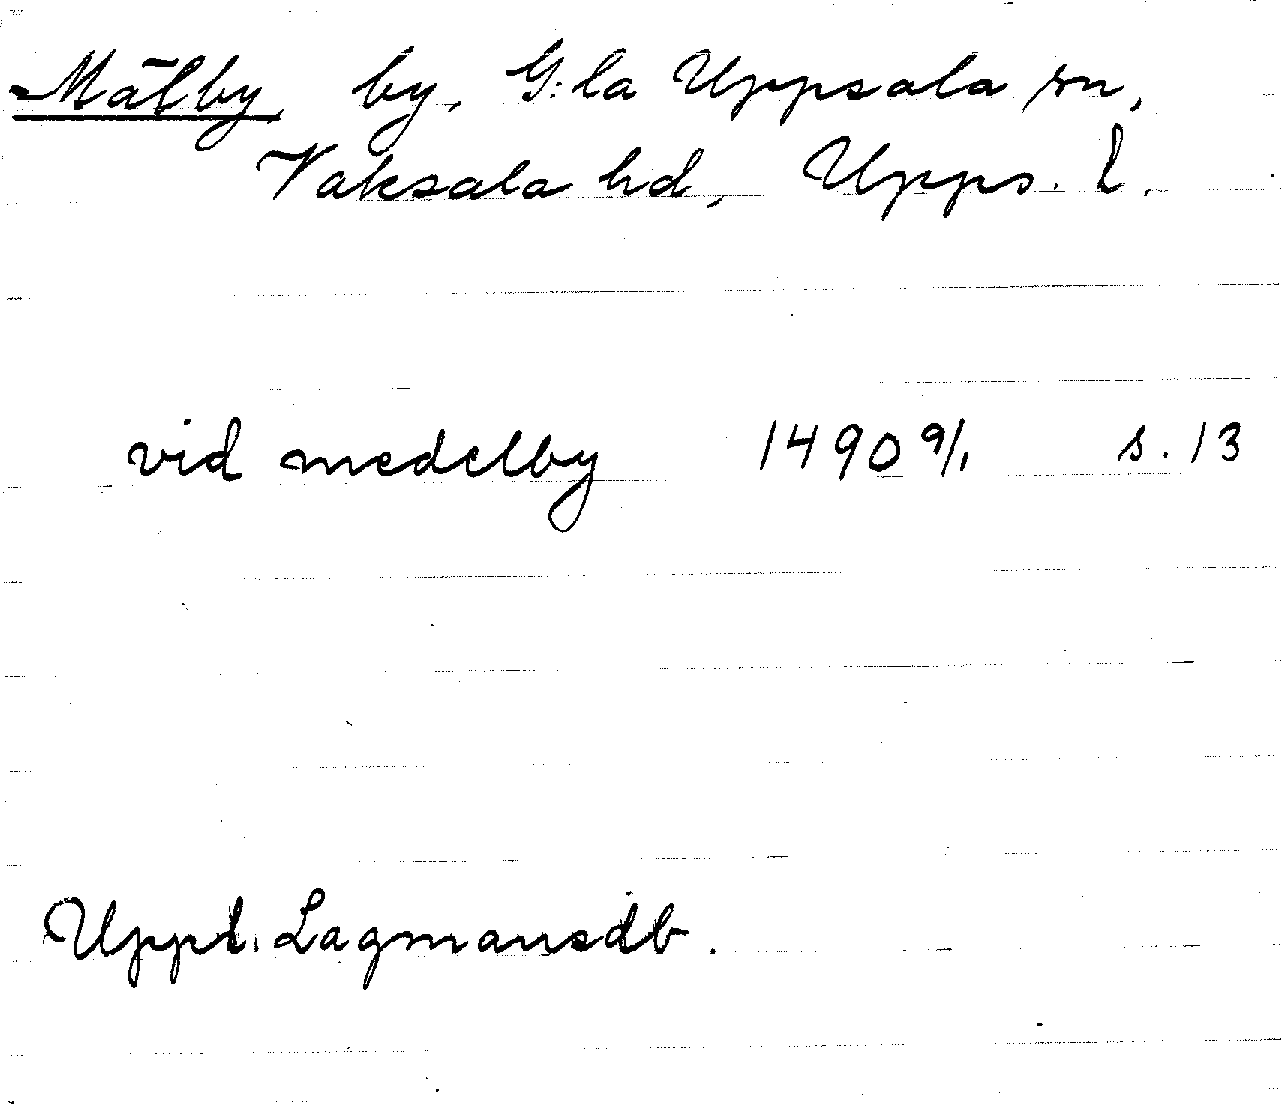 Mälby, by, G:la Uppsala sn,
Vaksala hd, Upps. l.
vid medelby 1490 9/1 s. 13
Uppl. Lagmansdb.